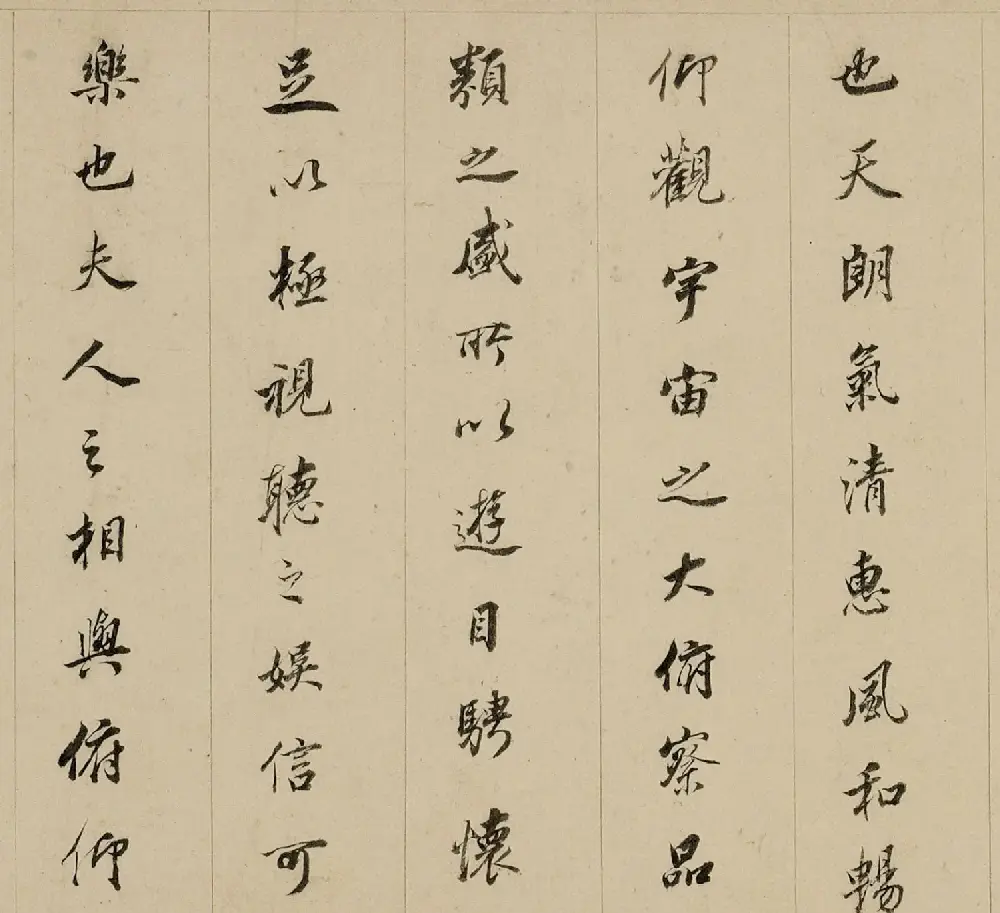 也天朗氣清惠風和暢
仰觀宇宙之大俯察品
類之盛所以遊目騁懷
足以極視聽之娛信可
樂也夫人之相與俯仰